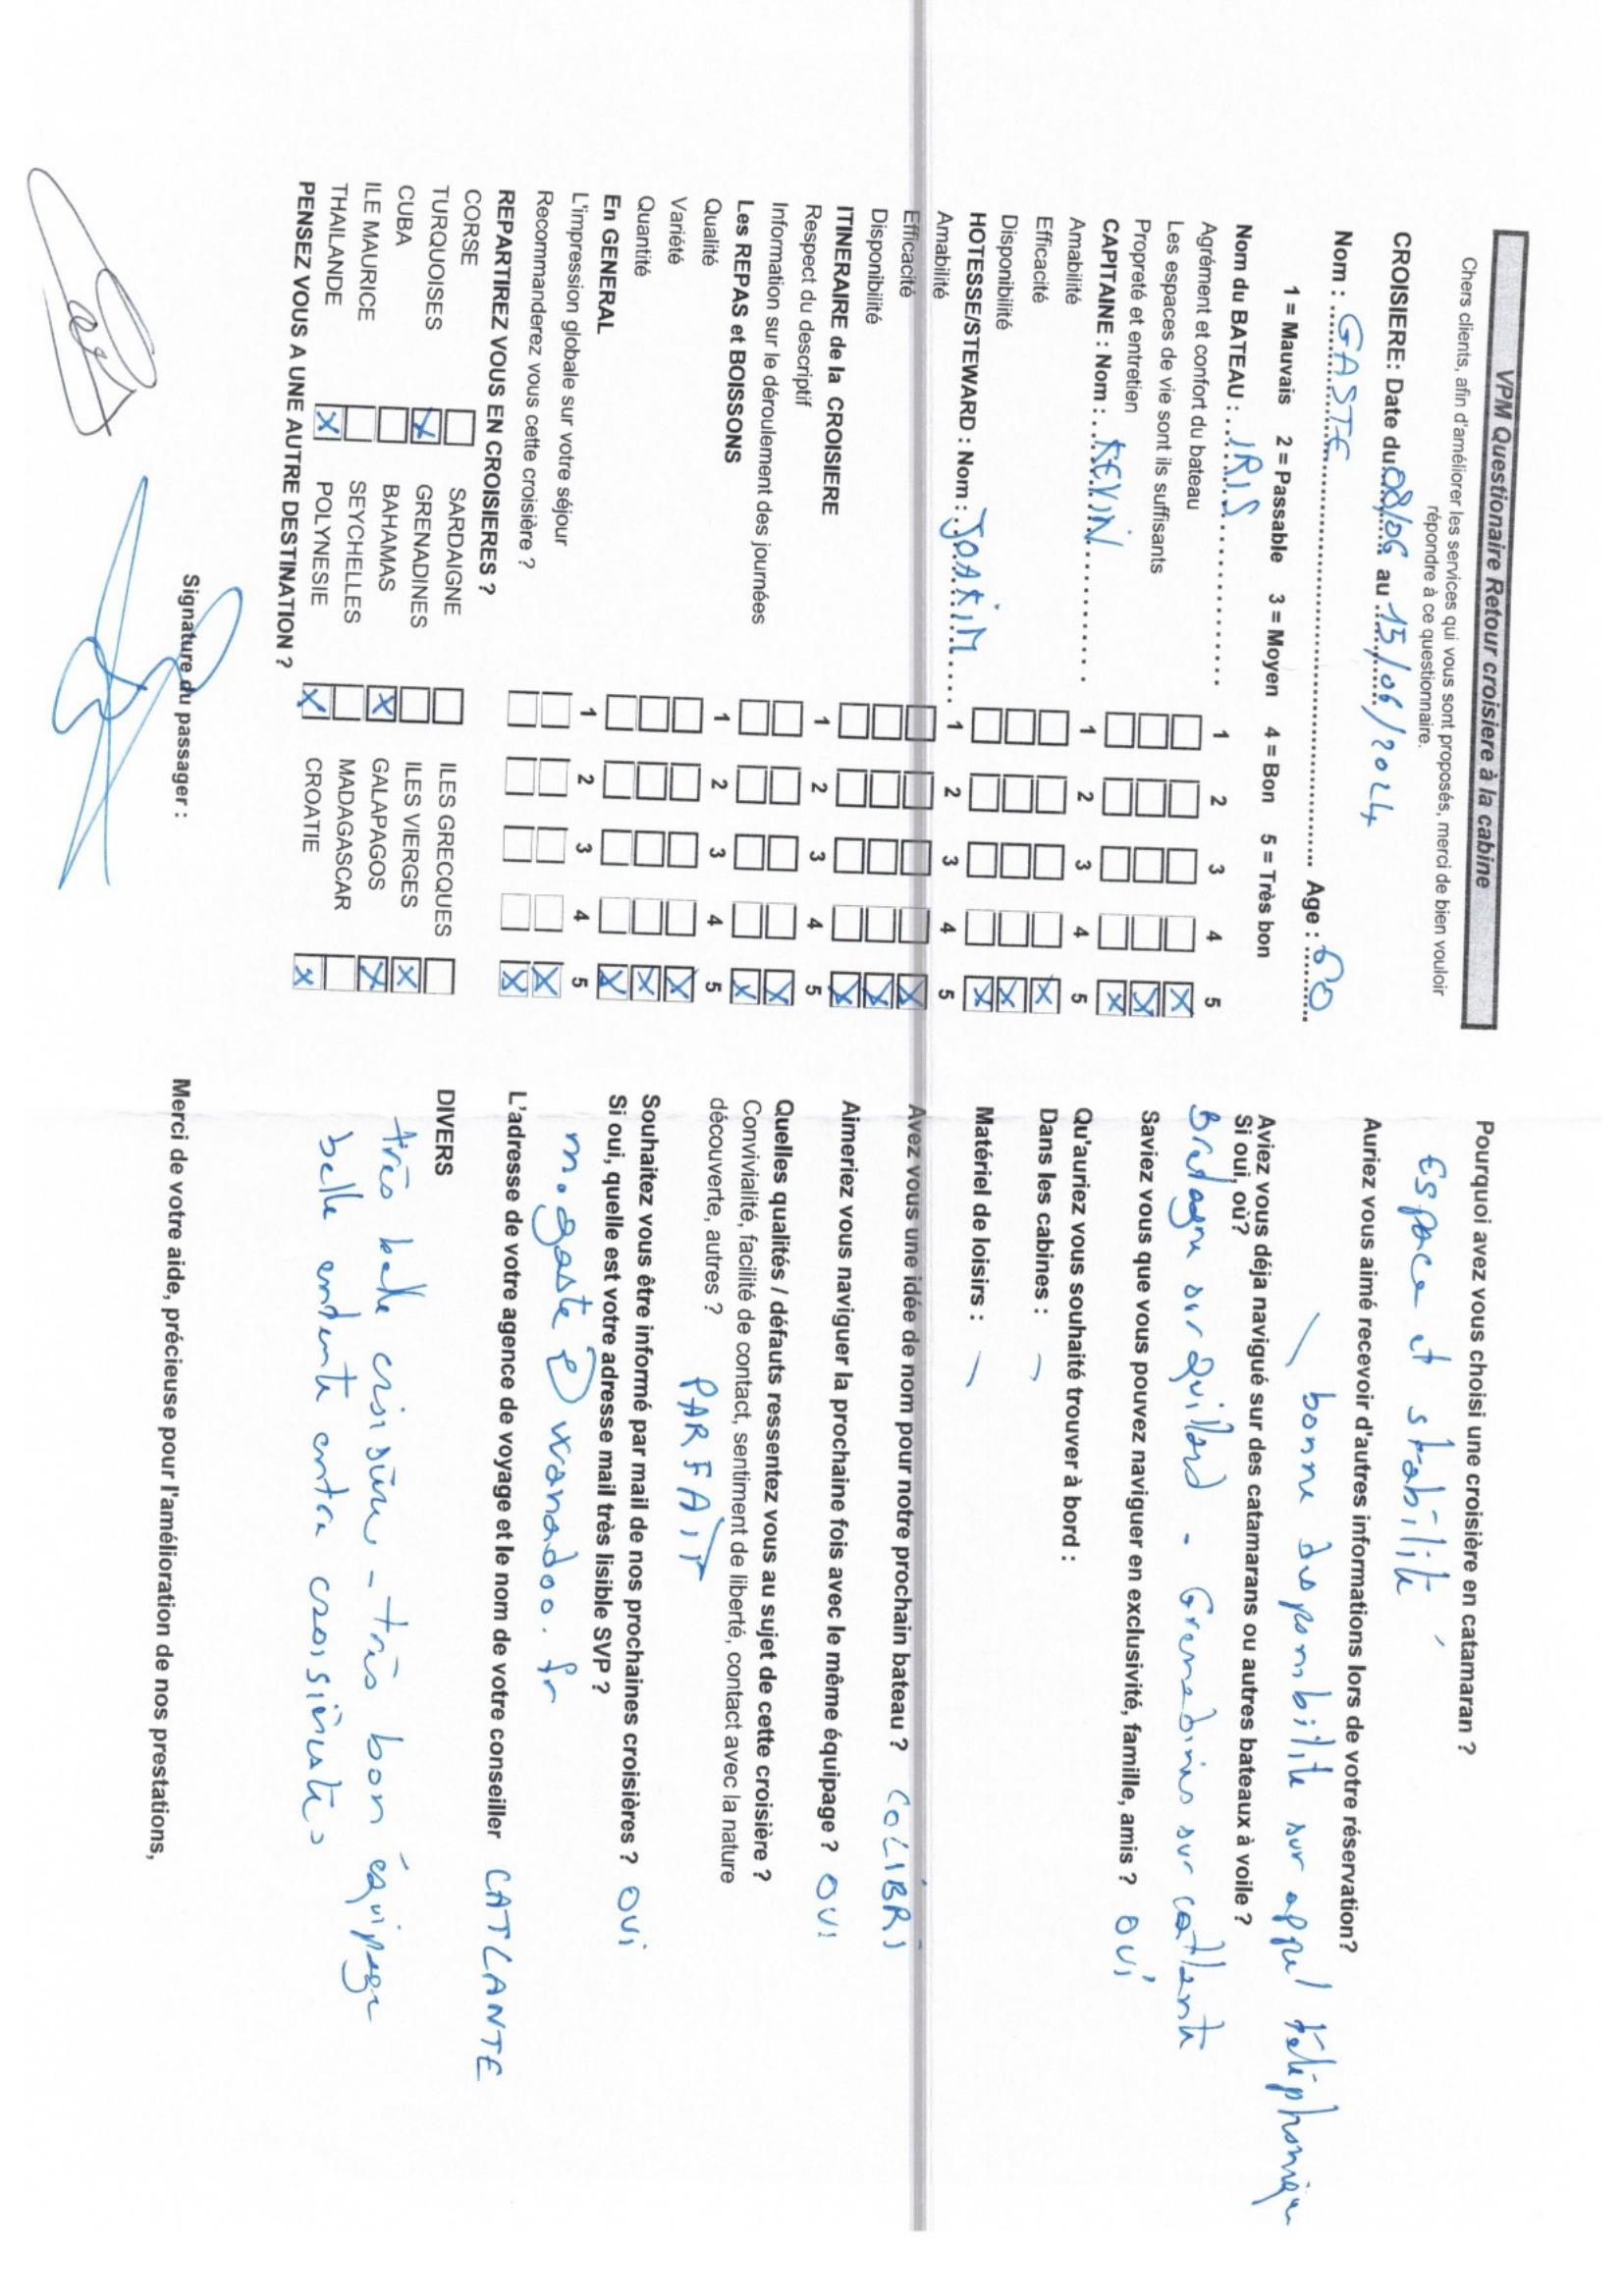 VPM Questionaire Retour croisiere à la cabine
Chers clients, afin d'améliorer les services qui vous sont proposés, merci de bien vouloir
répondre à ce questionnaire.
CROISIERE: Date du 08/06 au 15/06/2024
Nom : GASTE Age : 60
1 = Mauvais 2 = Passable 3 = Moyen 4 = Bon 5 = Très bon
Nom du BATEAU : IRIS 1 2 3 4 5
Agrément et confort du bateau X
Les espaces de vie sont ils suffisants X
Propreté et entretien X
CAPITAINE : Nom : KEVIN 1 2 3 4 5
Amabilité X
Efficacité X
Disponibilité X
HOTESSE/STEWARD : Nom : JOAKIM 1 2 3 4 5
Amabilité X
Efficacité X
Disponibilité X
ITINERAIRE de la CROISIERE 1 2 3 4 5
Respect du descriptif X
Information sur le déroulement des journées X
Les REPAS et BOISSONS 1 2 3 4 5
Qualité X
Variété X
Quantité X
En GENERAL 1 2 3 4 5
L'impression globale sur votre séjour X
Recommanderez vous cette croisière ? X
REPARTIREZ VOUS EN CROISIERES ?
CORSE SARDAIGNE ILES GRECQUES
TURQUOISES X GRENADINES ILES VIERGES X
CUBA BAHAMAS X GALAPAGOS X
ILE MAURICE SEYCHELLES MADAGASCAR
THAILANDE X POLYNESIE X CROATIE X
PENSEZ VOUS A UNE AUTRE DESTINATION ?
Signature du passager :
Pourquoi avez vous choisi une croisière en catamaran ?
Espace et stabilité
Auriez vous aimé recevoir d'autres informations lors de votre réservation?
\ bonne disponibilité sur appel téléphonique
Aviez vous déja navigué sur des catamarans ou autres bateaux à voile ?
Si oui, où?
Bretagne sur quillard - Grenadines sur catlante
Saviez vous que vous pouvez naviguer en exclusivité, famille, amis ? OUI
Qu'auriez vous souhaité trouver à bord :
Dans les cabines : -
Matériel de loisirs : -
Avez vous une idée de nom pour notre prochain bateau ? COLIBRI
Aimeriez vous naviguer la prochaine fois avec le même équipage ? OUI
Quelles qualités / défauts ressentez vous au sujet de cette croisière ?
Convivialité, facilité de contact, sentiment de liberté, contact avec la nature
découverte, autres ? PARFAIT
Souhaitez vous être informé par mail de nos prochaines croisières ? OUI
Si oui, quelle est votre adresse mail très lisible SVP ?
m.gaste@wanadoo.fr
L'adresse de votre agence de voyage et le nom de votre conseiller CATLANTE
DIVERS
très belle croisière - très bon équipage
belle entente entre croisiéristes
Merci de votre aide, précieuse pour l'amélioration de nos prestations,